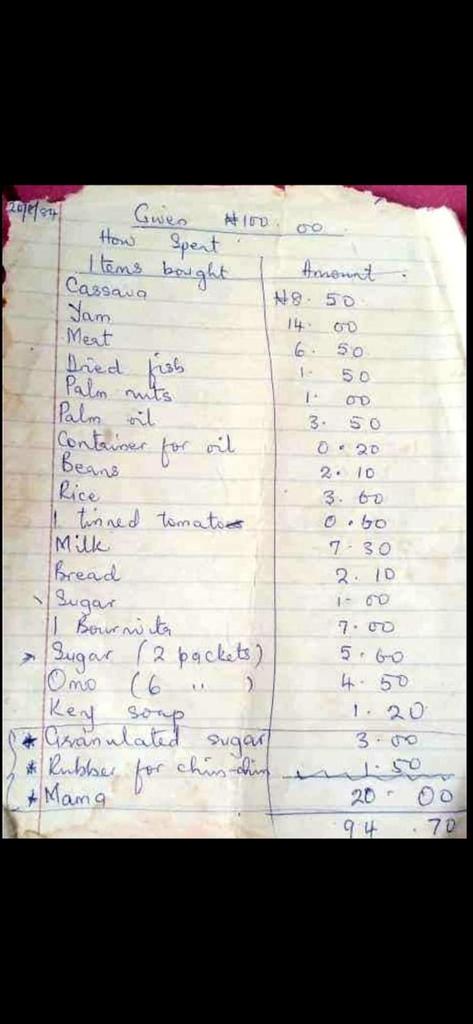 20/8/84
Given ₦100.00
How Spent
Items bought Amount.
Cassava ₦8.50
Yam 14.00
Meat 6.50
Dried fish 1.50
Palm nuts 1.00
Palm oil 3.50
Container for oil 0.20
Beans 2.10
Rice 3.60
1 tinned tomatoes 0.60
Milk 7.30
Bread 2.10
Sugar 1-00
1 Bournvita 7.00
Sugar (2 packets) 5.60
Omo (6 " ) 4.50
Key soap 1.20
* Granulated sugar 3.00
* Rubber for chin-chin 1.50
* Mama 20-00
94.70